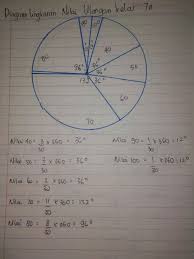 Diagram lingkaran Nilai Ulangan kelas 7A
80
40
96°
36°
36°
50
132°
36°
60
70
Nilai 40 = 3/30 x 360 = 36° Nilai 90 = 1/30 x 360 = 12°
Nilai 50 = 3/30 x 360 = 36° Nilai 100 = 1/30 x 360 = 12°
Nilai 60 = 3/30 x 360 = 36°
Nilai 70 = 11/30 x 360 = 132°
Nilai 80 = 8/30 x 360 = 96°